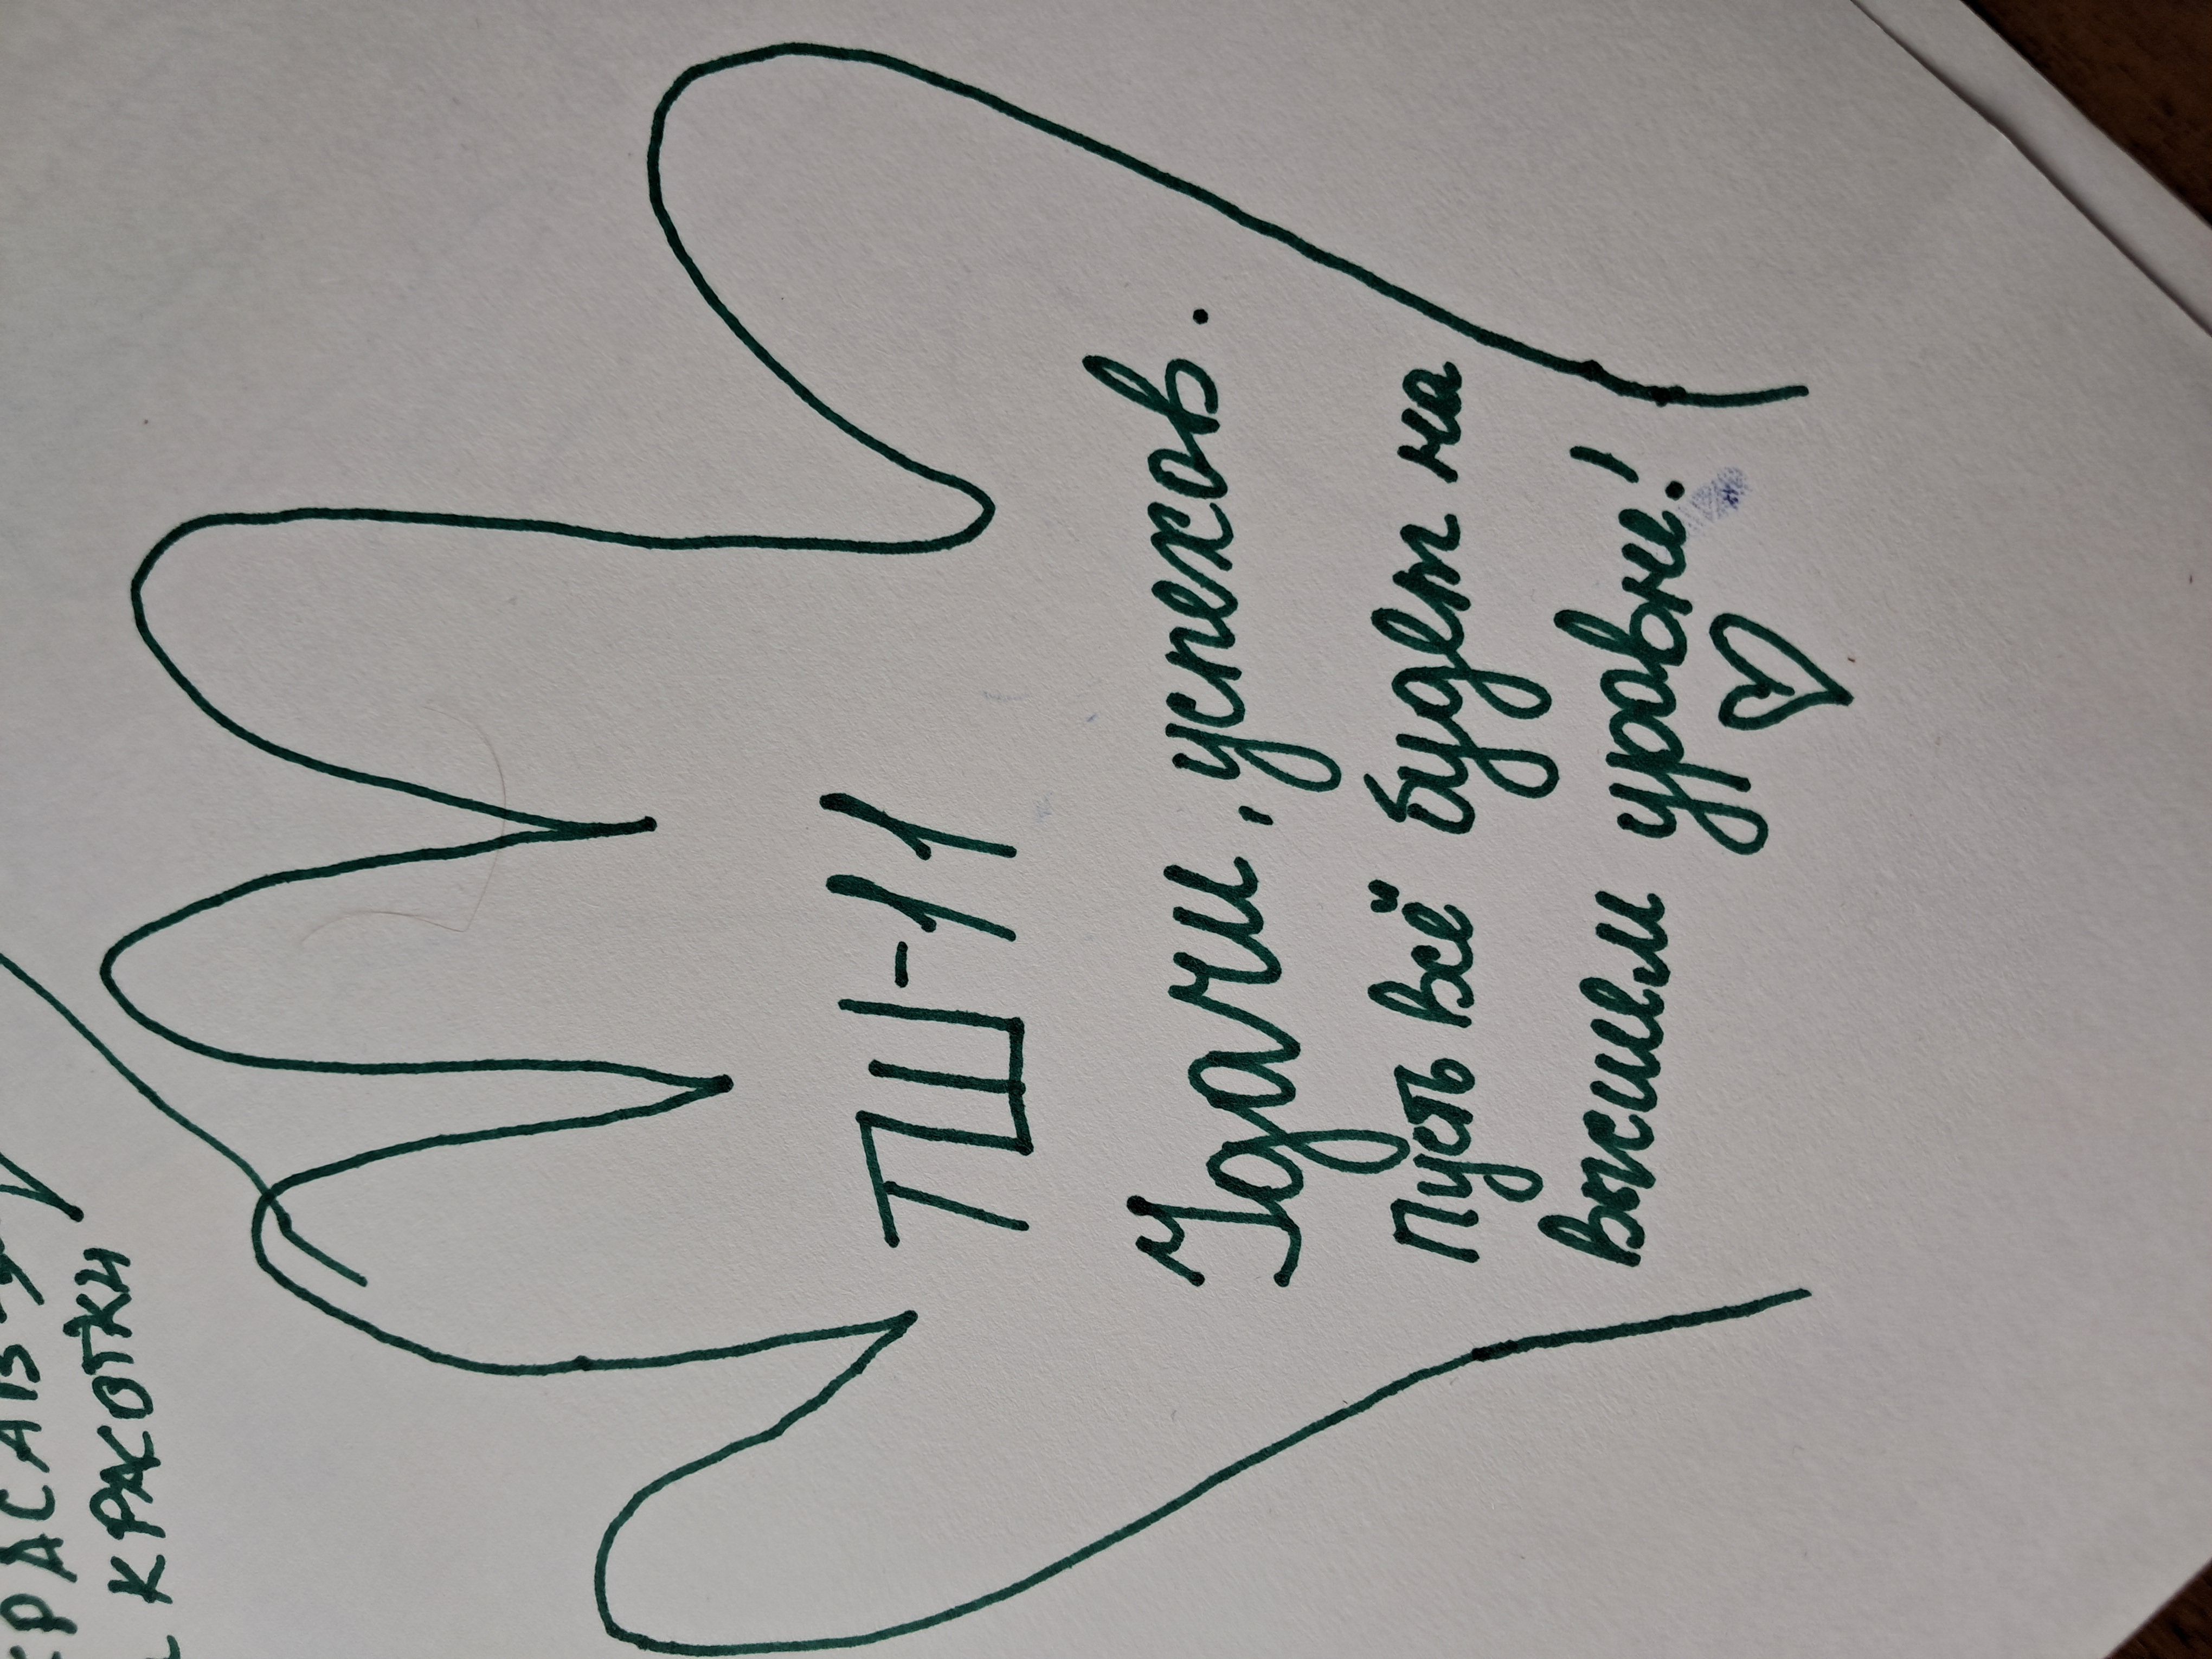 КРАСОТКИ
ТШ-11
Удачи, успехов.
Пусть всё будет на
высшем уровне!